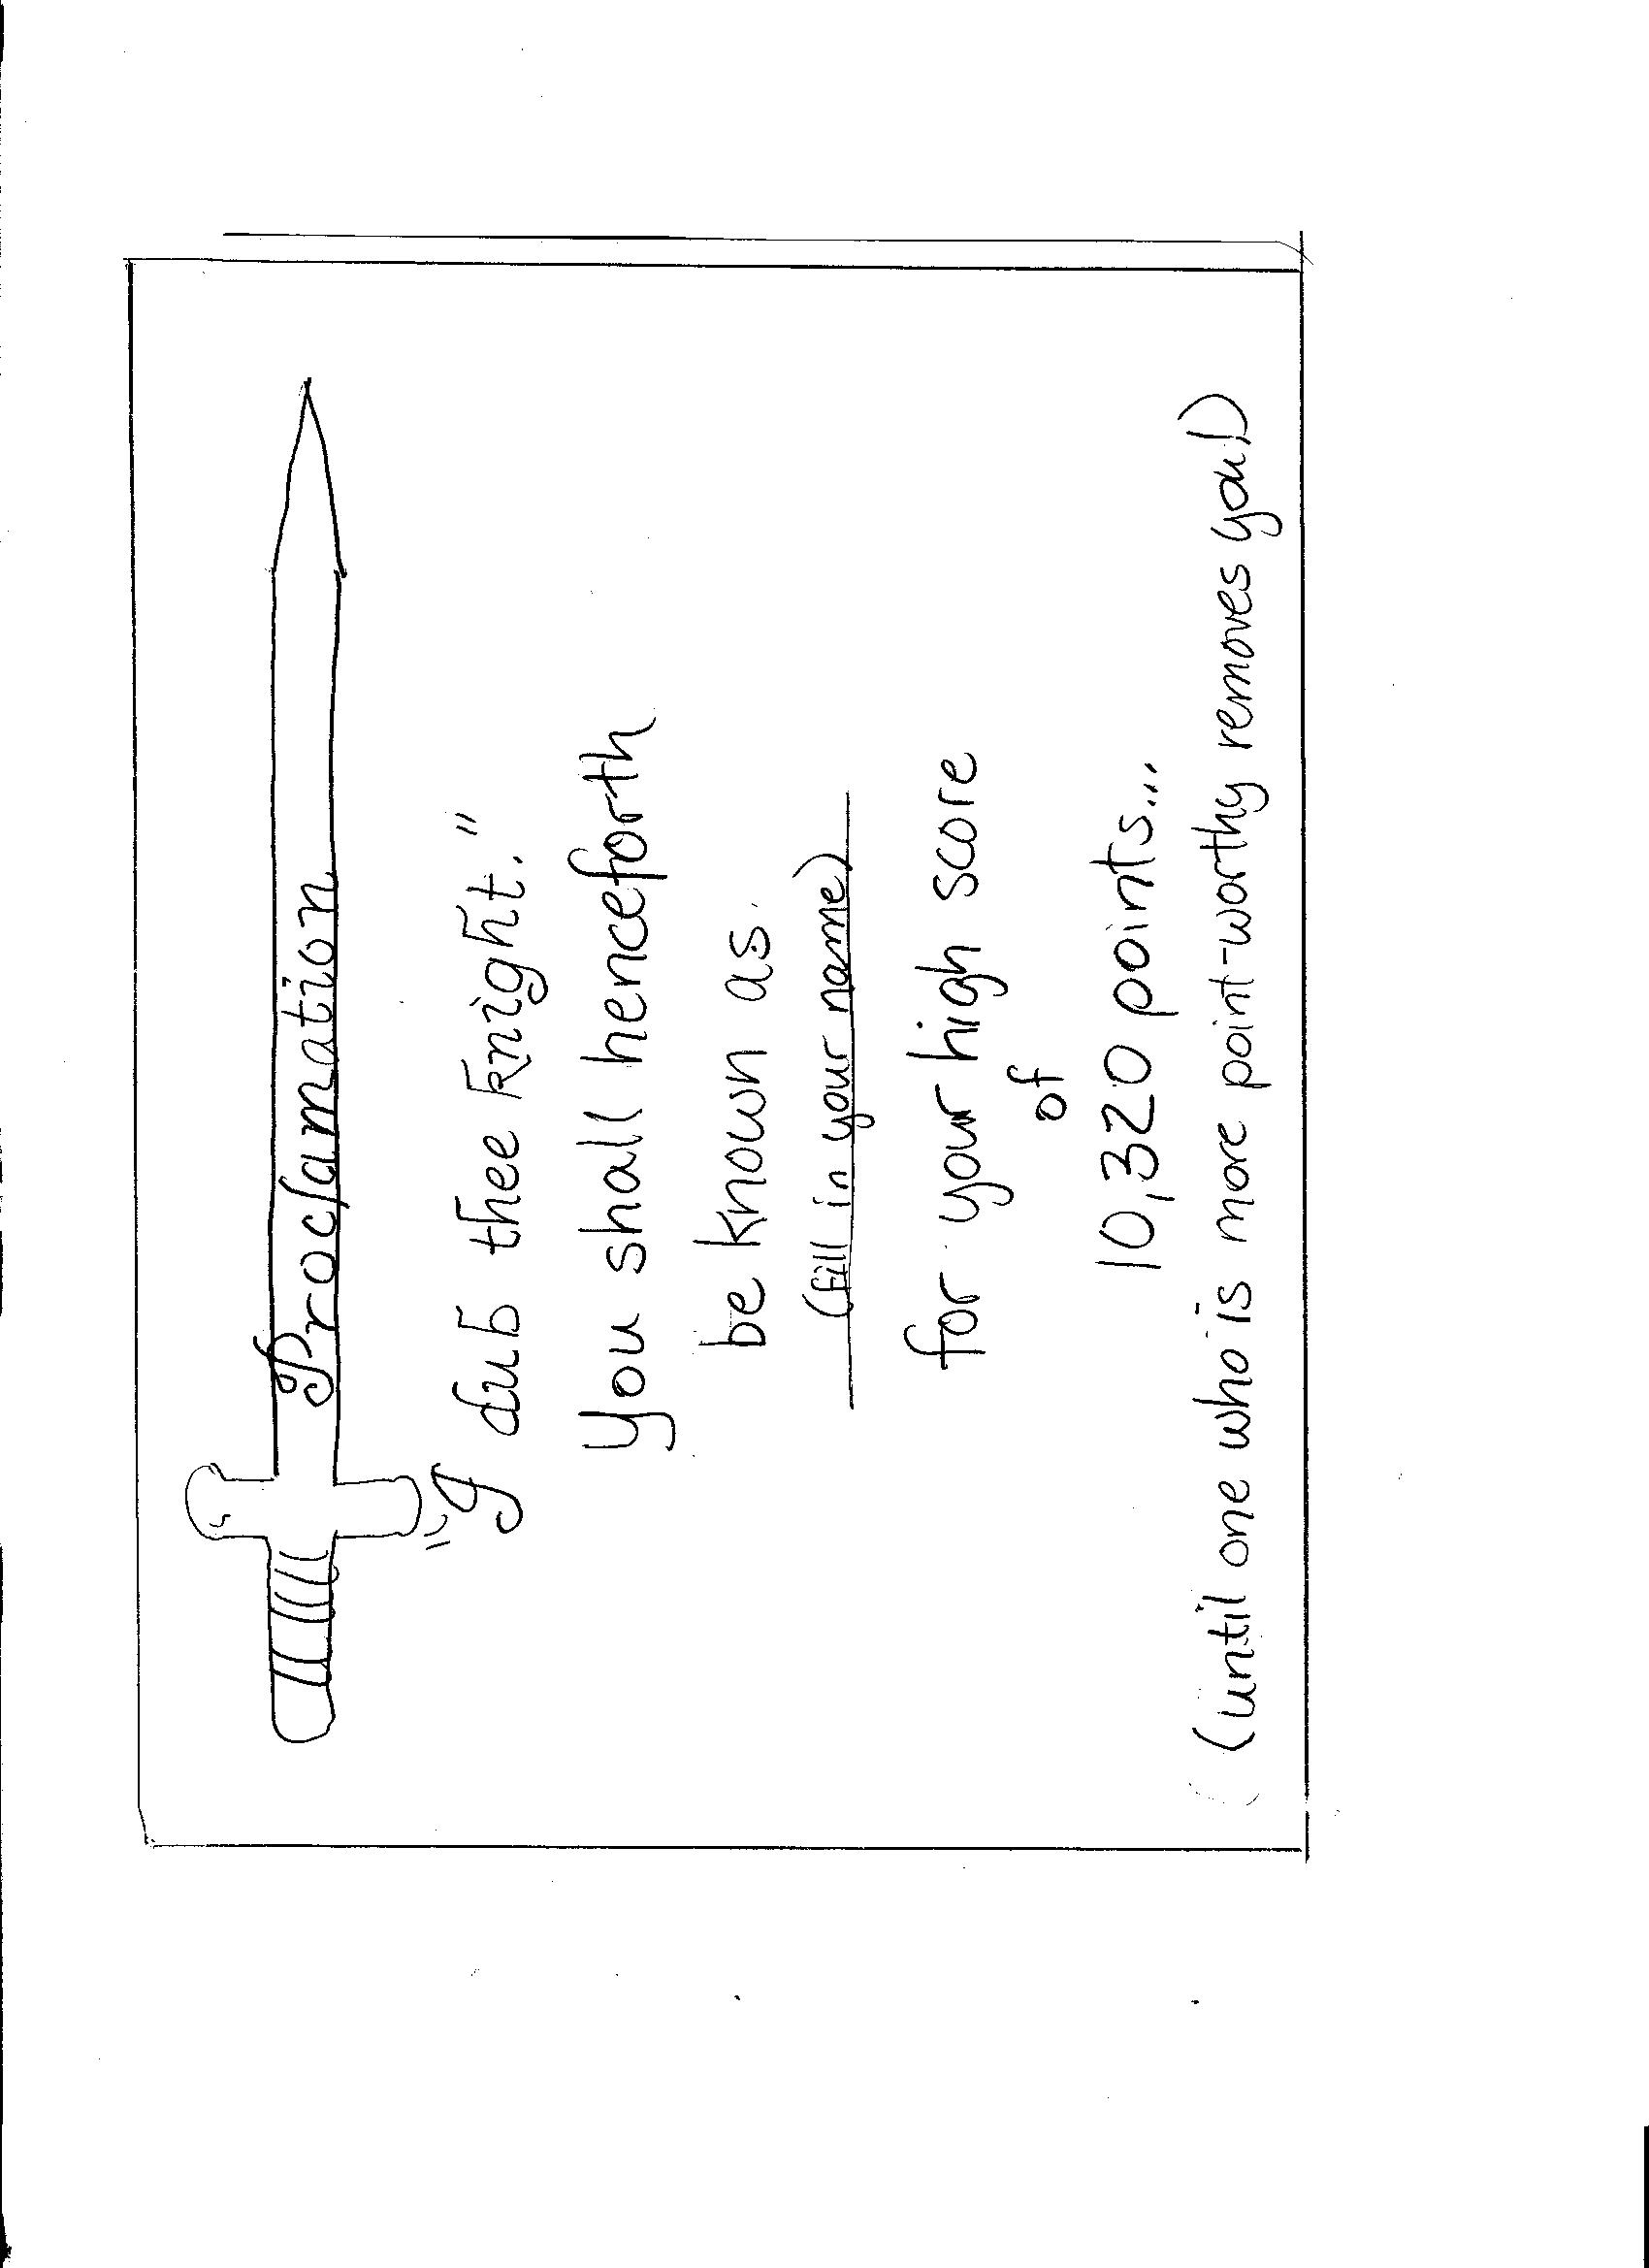 Proclamation
"I dub thee knight."
You shall henceforth
be known as
(fill in your name)
for your high score
of
10,320 points...
(until one who is more point-worthy removes you!)